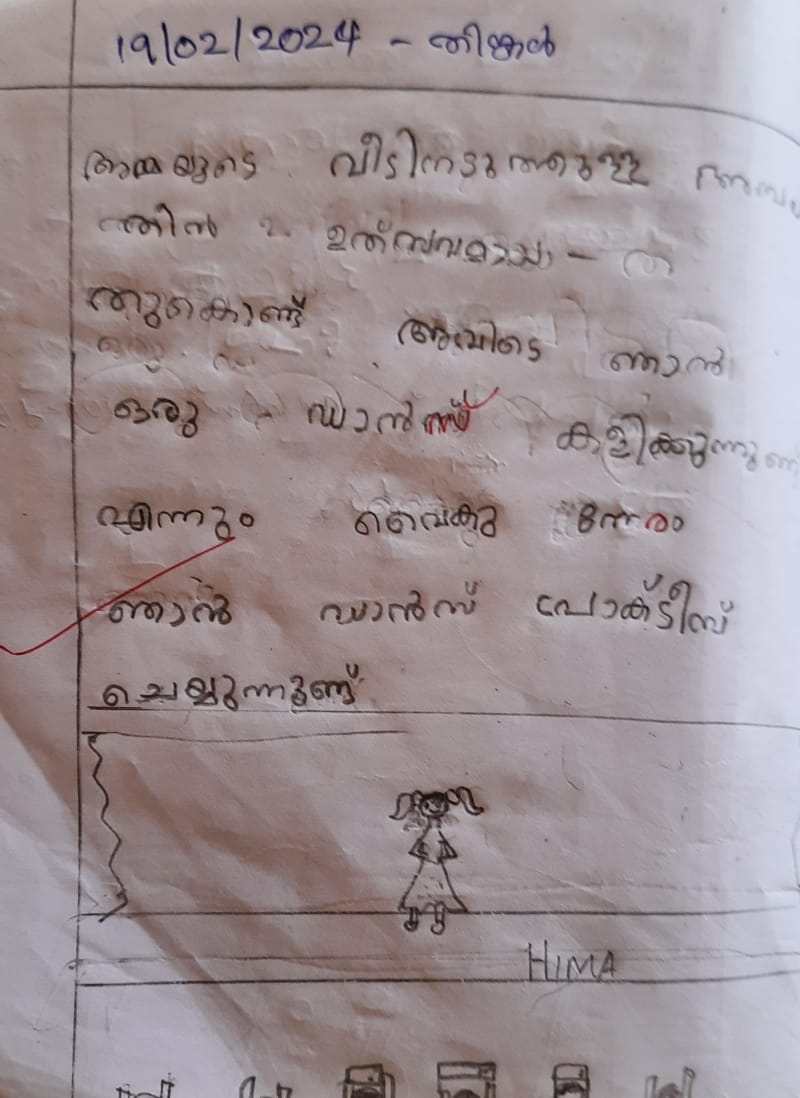 19/02/2024 - തിങ്കൾ
അമ്മയുടെ വീടിനടുത്തുള്ള
ത്തിൽ ഉത്സവമായ -
തുകൊണ്ട് അവിടെ ഞാൻ
ഒരു ഡാൻസ് കളിക്കുന്നുണ്
എന്നും വൈകു ന്നേരം
ഞാൻ ഡാൻസ് പ്രാക്ടീസ്
ചെയ്യുന്നുണ്ട്
HIMA